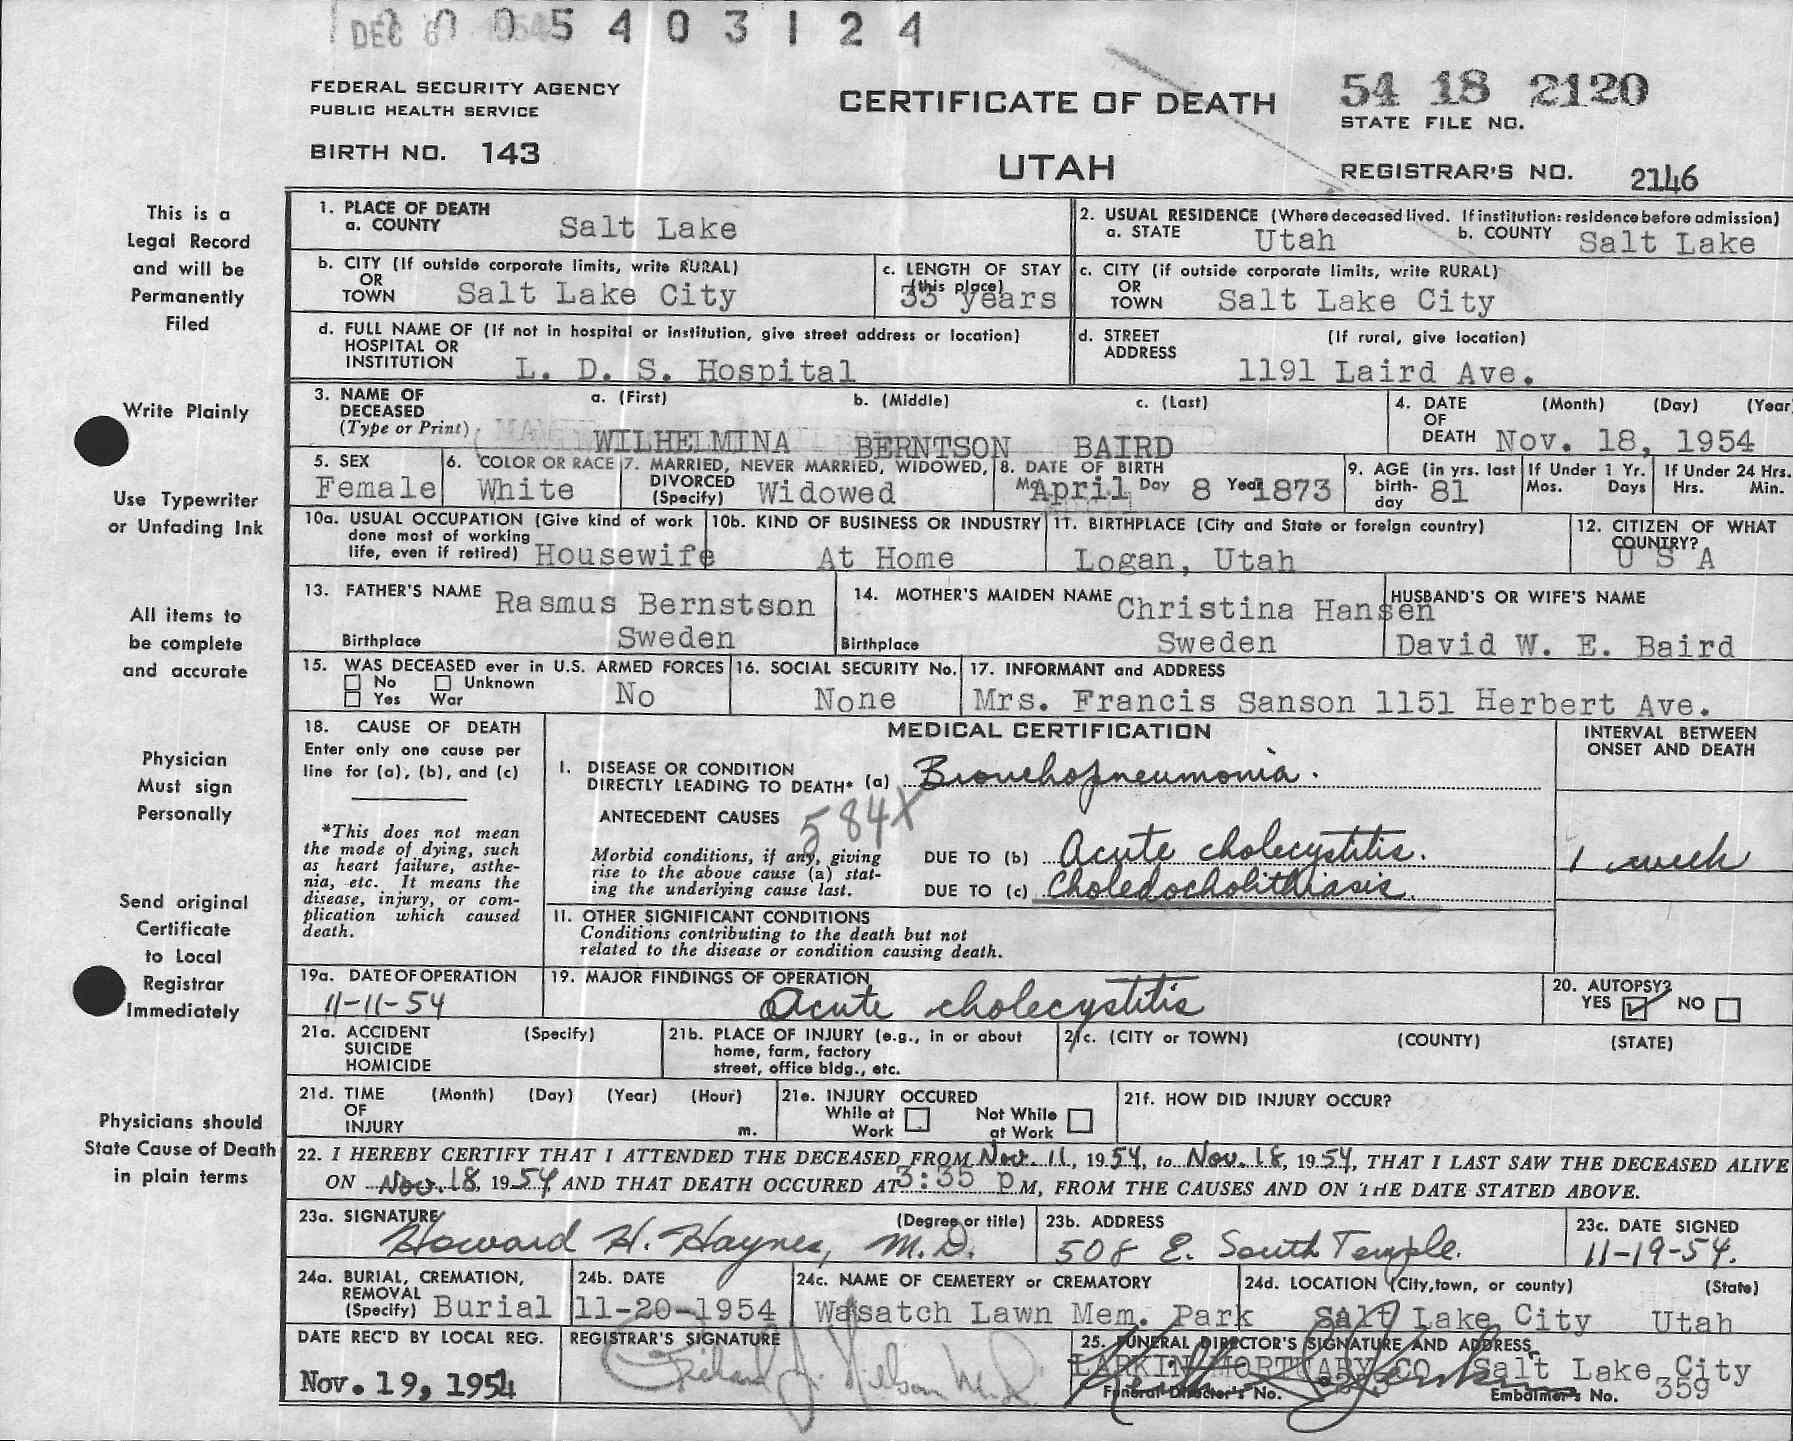 DEC 6
0 0 5 4 0 3 1 2 4
FEDERAL SECURITY AGENCY
PUBLIC HEALTH SERVICE
BIRTH NO. 143
CERTIFICATE OF DEATH
UTAH
54 18 2120
STATE FILE NO.
REGISTRAR'S NO. 2146
This is a
Legal Record
and will be
Permanently
Filed
Write Plainly
Use Typewriter
or Unfading Ink
All items to
be complete
and accurate
Physician
Must sign
Personally
Send original
Certificate
to Local
Registrar
Immediately
Physicians should
State Cause of Death
in plain terms
1. PLACE OF DEATH
a. COUNTY Salt Lake
2. USUAL RESIDENCE (Where deceased lived. If institution: residence before admission)
a. STATE Utah b. COUNTY Salt Lake
b. CITY (If outside corporate limits, write RURAL)
OR
TOWN Salt Lake City
c. LENGTH OF STAY
(this place)
33 years
c. CITY (if outside corporate limits, write RURAL)
OR
TOWN Salt Lake City
d. FULL NAME OF (If not in hospital or institution, give street address or location)
HOSPITAL OR
INSTITUTION L. D. S. Hospital
d. STREET (If rural, give location)
ADDRESS
1191 Laird Ave.
3. NAME OF a. (First) b. (Middle) c. (Last)
DECEASED
(Type or Print)
WILHELMINA BERNTSON BAIRD
4. DATE (Month) (Day) (Year
OF
DEATH Nov. 18, 1954
5. SEX
Female
6. COLOR OR RACE
White
7. MARRIED, NEVER MARRIED, WIDOWED,
DIVORCED
(Specify) Widowed
8. DATE OF BIRTH
Mo April Day 8 Year 1873
9. AGE (in yrs. last
birth-
day 81
If Under 1 Yr.
Mos. Days
If Under 24 Hrs.
Hrs. Min.
10a. USUAL OCCUPATION (Give kind of work
done most of working
life, even if retired) Housewife
10b. KIND OF BUSINESS OR INDUSTRY
At Home
11. BIRTHPLACE (City and State or foreign country)
Logan, Utah
12. CITIZEN OF WHAT
COUNTRY?
U S A
13. FATHER'S NAME Rasmus Bernstson
Birthplace Sweden
14. MOTHER'S MAIDEN NAME Christina Hansen
Birthplace Sweden
HUSBAND'S OR WIFE'S NAME
David W. E. Baird
15. WAS DECEASED ever in U.S. ARMED FORCES
No Unknown
Yes War No
16. SOCIAL SECURITY No.
None
17. INFORMANT and ADDRESS
Mrs. Francis Sanson 1151 Herbert Ave.
18. CAUSE OF DEATH
Enter only one cause per
line for (a), (b), and (c)
*This does not mean
the mode of dying, such
as heart failure, asthe-
nia, etc. It means the
disease, injury, or com-
plication which caused
death.
MEDICAL CERTIFICATION
INTERVAL BETWEEN
ONSET AND DEATH
I. DISEASE OR CONDITION
DIRECTLY LEADING TO DEATH* (a) Bronchopneumonia.
ANTECEDENT CAUSES 584X
Morbid conditions, if any, giving
rise to the above cause (a) stat-
ing the underlying cause last.
DUE TO (b) Acute cholecystitis. 1 week
DUE TO (c) Choledocholithiasis.
II. OTHER SIGNIFICANT CONDITIONS
Conditions contributing to the death but not
related to the disease or condition causing death.
19a. DATE OF OPERATION
11-11-54
19. MAJOR FINDINGS OF OPERATION
Acute cholecystitis
20. AUTOPSY?
YES NO
21a. ACCIDENT (Specify)
SUICIDE
HOMICIDE
21b. PLACE OF INJURY (e.g., in or about
home, farm, factory
street, office bldg., etc.
21c. (CITY or TOWN) (COUNTY) (STATE)
21d. TIME (Month) (Day) (Year) (Hour)
OF
INJURY m.
21e. INJURY OCCURED
While at Work
Not While at Work
21f. HOW DID INJURY OCCUR?
22. I HEREBY CERTIFY THAT I ATTENDED THE DECEASED FROM Nov. 11, 1954, to Nov. 18, 1954, THAT I LAST SAW THE DECEASED ALIVE
ON Nov. 18, 1954 AND THAT DEATH OCCURED AT 3:35 P M, FROM THE CAUSES AND ON THE DATE STATED ABOVE.
23a. SIGNATURE (Degree or title)
Howard H. Haynes, M.D.
23b. ADDRESS
508 E. South Temple.
23c. DATE SIGNED
11-19-54.
24a. BURIAL, CREMATION,
REMOVAL
(Specify) Burial
24b. DATE
11-20-1954
24c. NAME OF CEMETERY or CREMATORY
Wasatch Lawn Mem. Park
24d. LOCATION (City, town, or county) (State)
Salt Lake City Utah
DATE REC'D BY LOCAL REG.
Nov. 19, 1954
REGISTRAR'S SIGNATURE
25. FUNERAL DIRECTOR'S SIGNATURE AND ADDRESS
LARKIN MORTUARY CO Salt Lake City
Funeral Director's No. Embalmer's No. 359